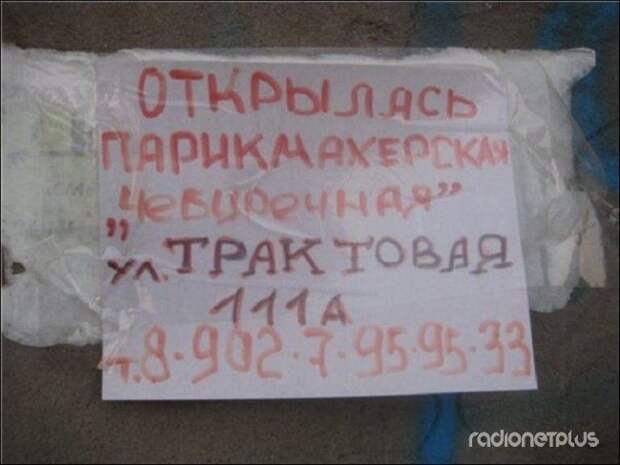 ОТКРЫЛАСЬ
ПАРИКМАХЕРСКАЯ
„Чебуречная”
ул. ТРАКТОВАЯ
111А
т. 8-902-7-95-95-33
radionetplus